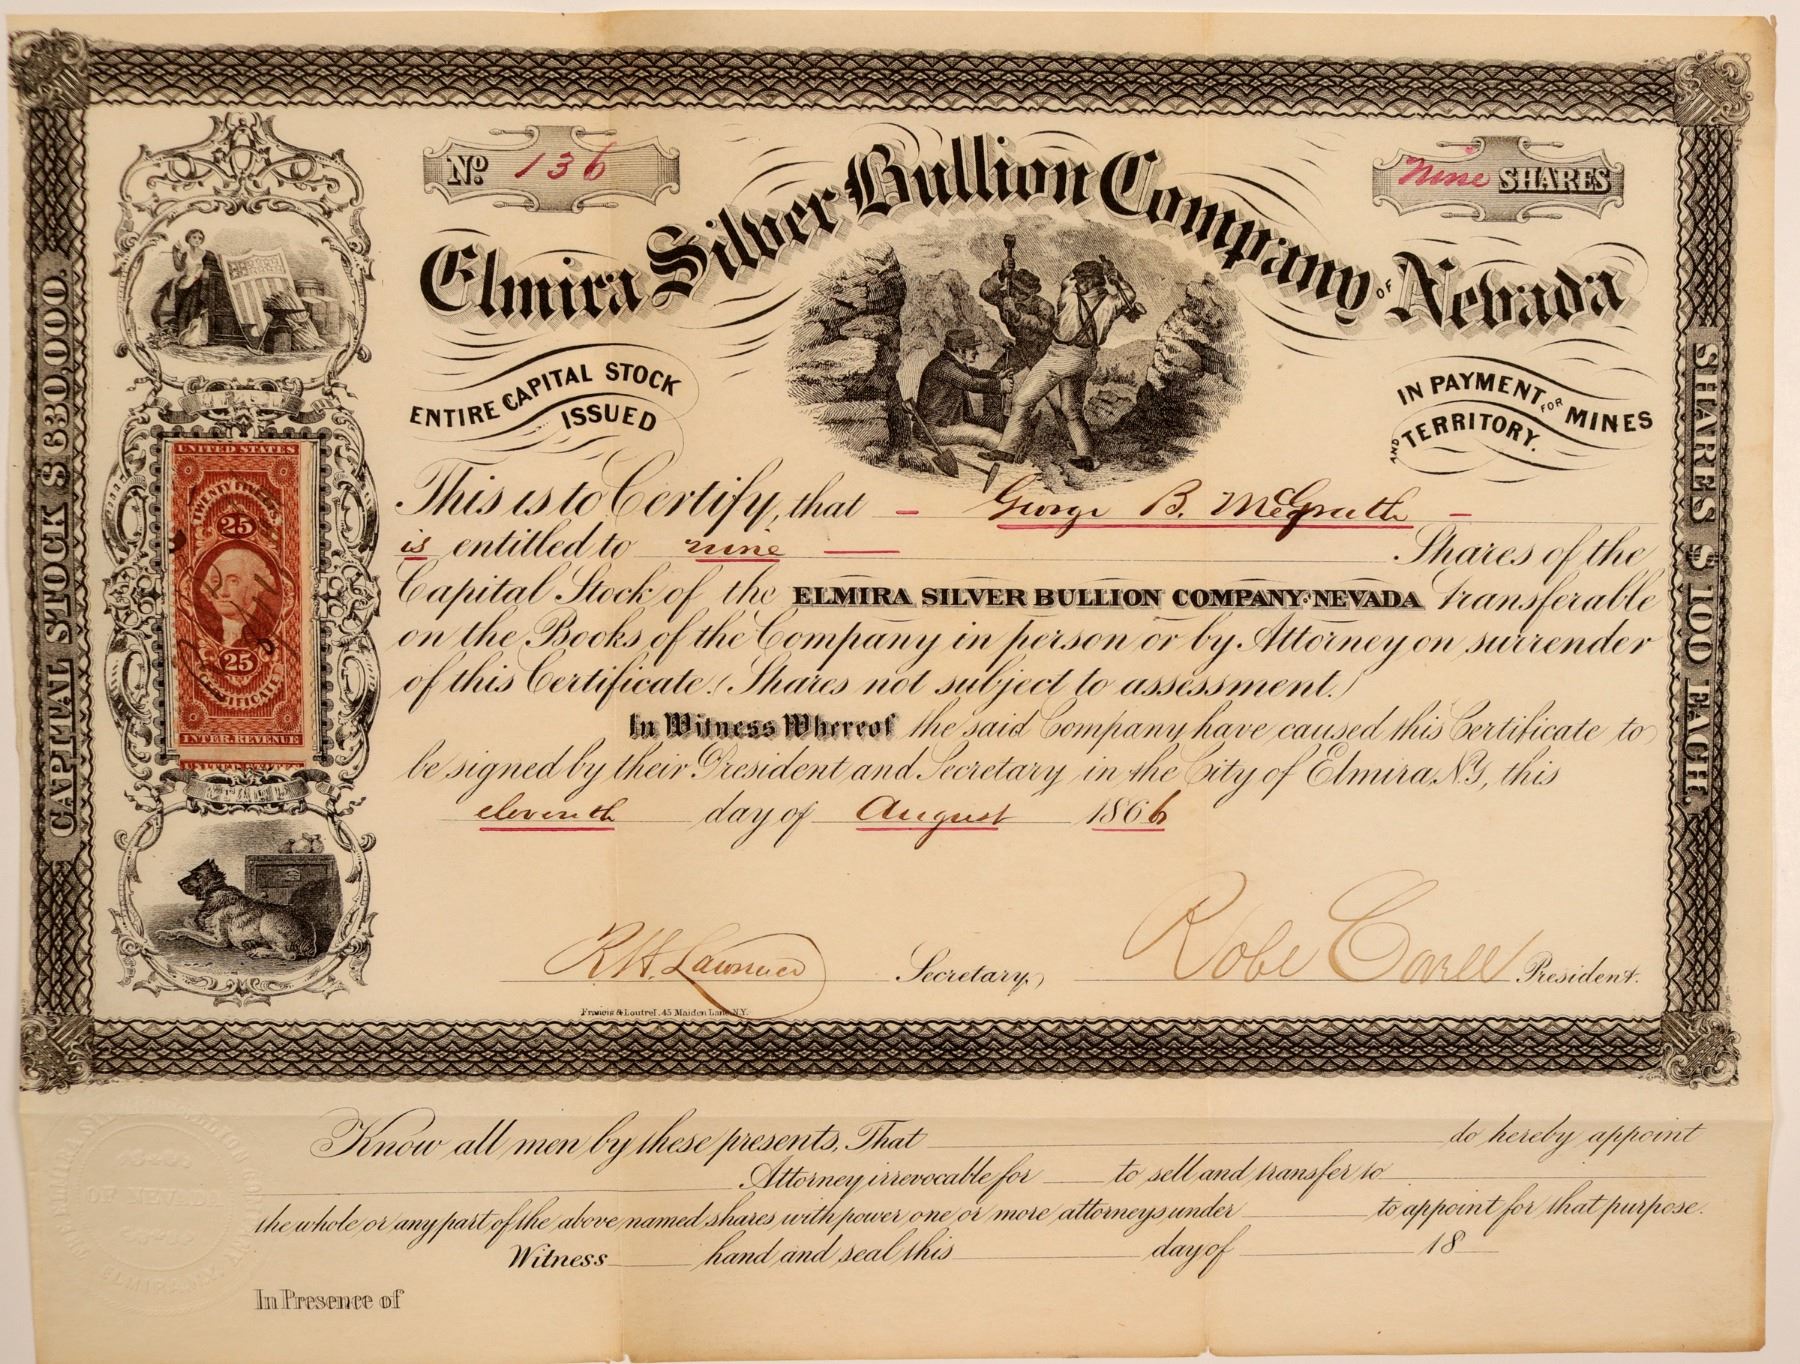 No. 136
Nine SHARES
Elmira Silver Bullion Company OF Nevada
ENTIRE CAPITAL STOCK
ISSUED
IN PAYMENT FOR MINES
AND TERRITORY.
CAPITAL STOCK $630,000.
SHARES $100 EACH.
UNITED STATES
TWENTY FIVE CTS.
25
25
CERTIFICATE
INTER. REVENUE
This is to Certify, that – George B. McGrath –
is entitled to nine — Shares of the
Capital Stock of the ELMIRA SILVER BULLION COMPANY OF NEVADA transferable
on the Books of the Company in person or by Attorney on surrender
of this Certificate. (Shares not subject to assessment.)
In Witness Whereof the said Company have caused this Certificate to
be signed by their President and Secretary in the City of Elmira N.Y, this
eleventh day of August 1866
R H Lawrence Secretary, Robt Covell President.
Francis & Loutrel. 45 Maiden Lane N.Y.
Know all men by these presents, That do hereby appoint
Attorney irrevocable for to sell and transfer to
the whole or any part of the above named shares with power one or more attorneys under to appoint for that purpose.
Witness hand and seal this day of 18
In Presence of
OF NEVADA
ELMIRA N.Y.